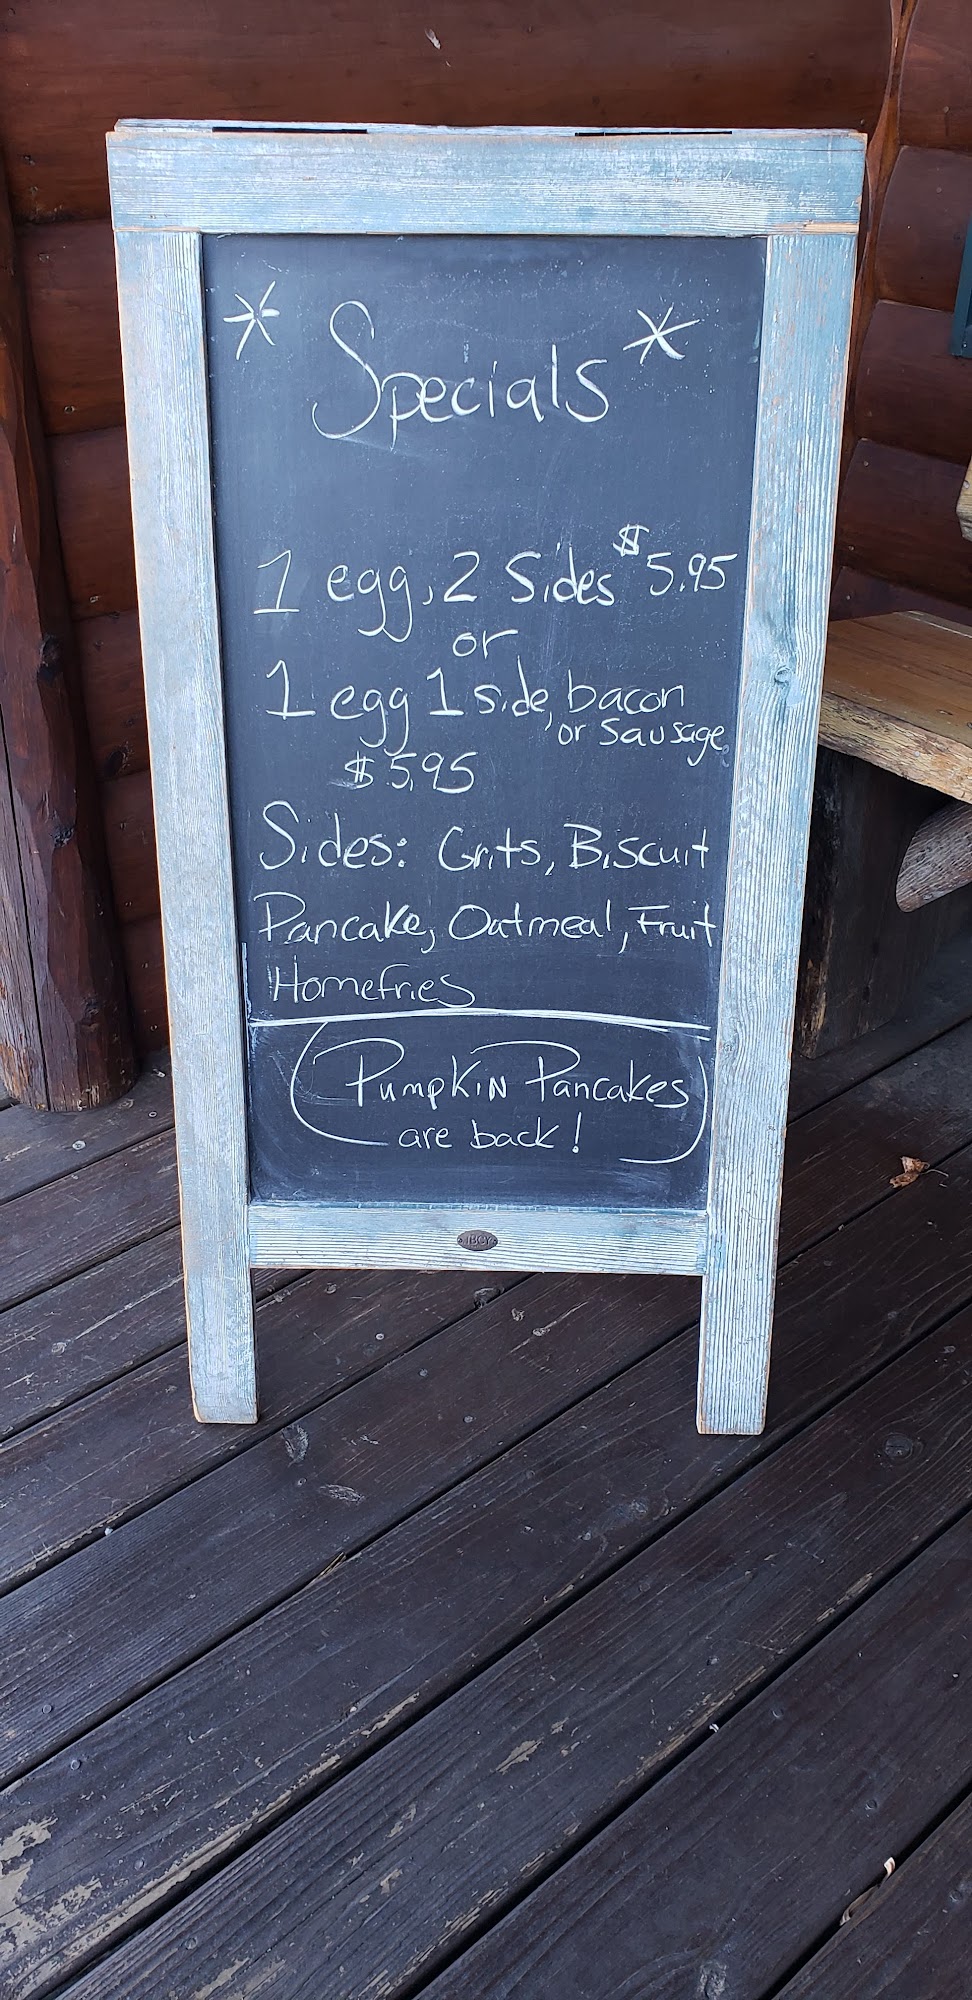 * Specials *
1 egg, 2 Sides $5.95
or
1 egg 1 side, bacon
or Sausage
$5.95
Sides: Grits, Biscuit
Pancake, Oatmeal, Fruit
Homefries
Pumpkin Pancakes
are back!